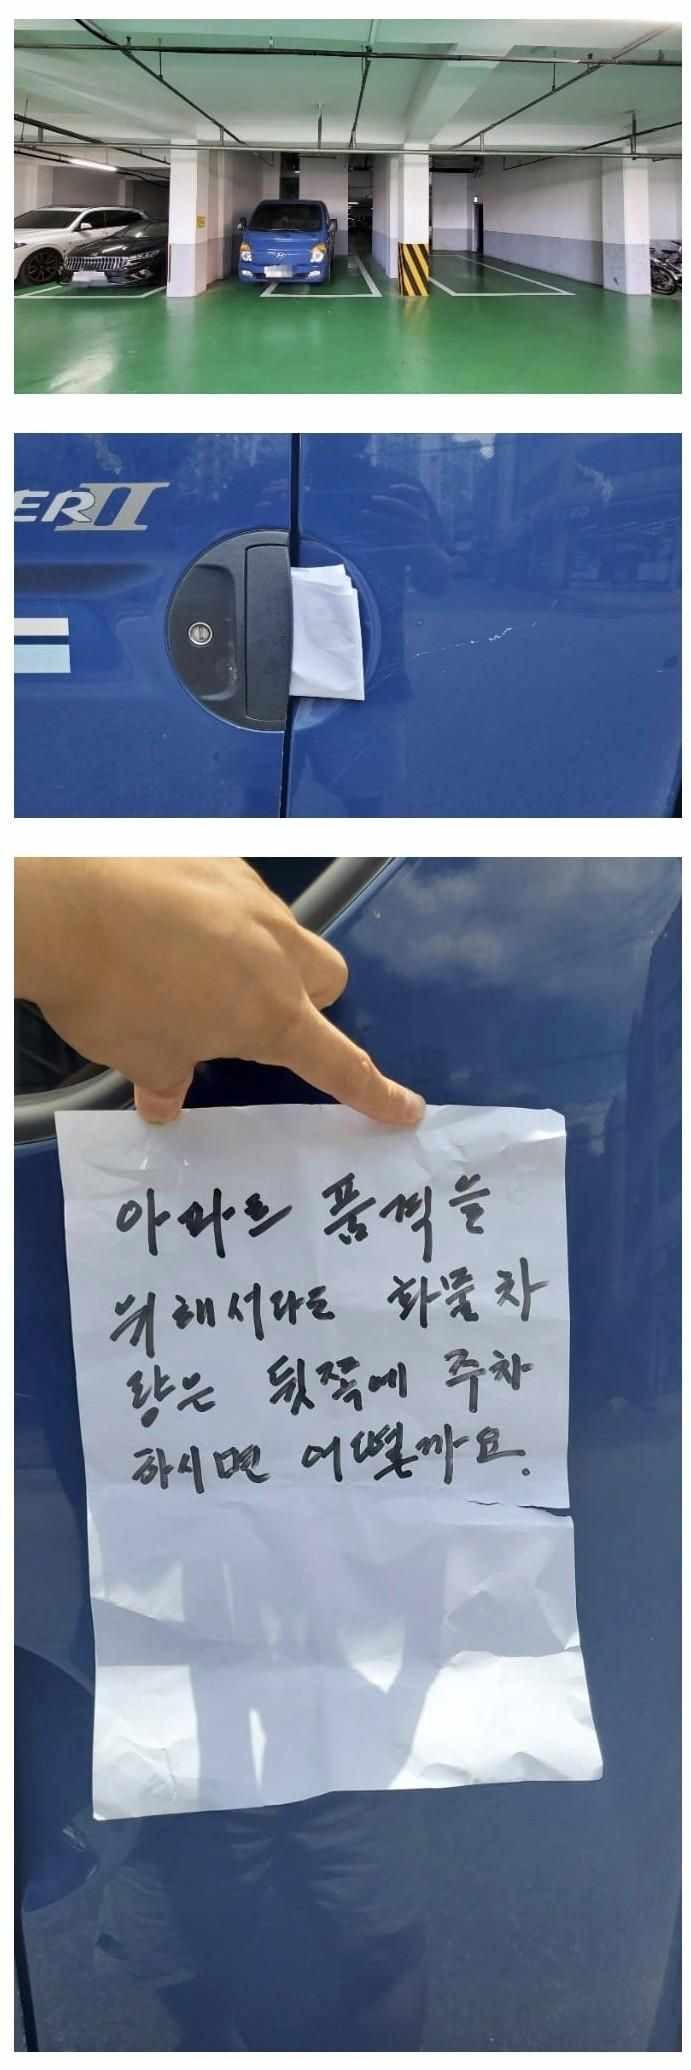 ERII
아파트 품격을
위해서라도 화물차
량은 뒷쪽에 주차
하시면 어떨까요.